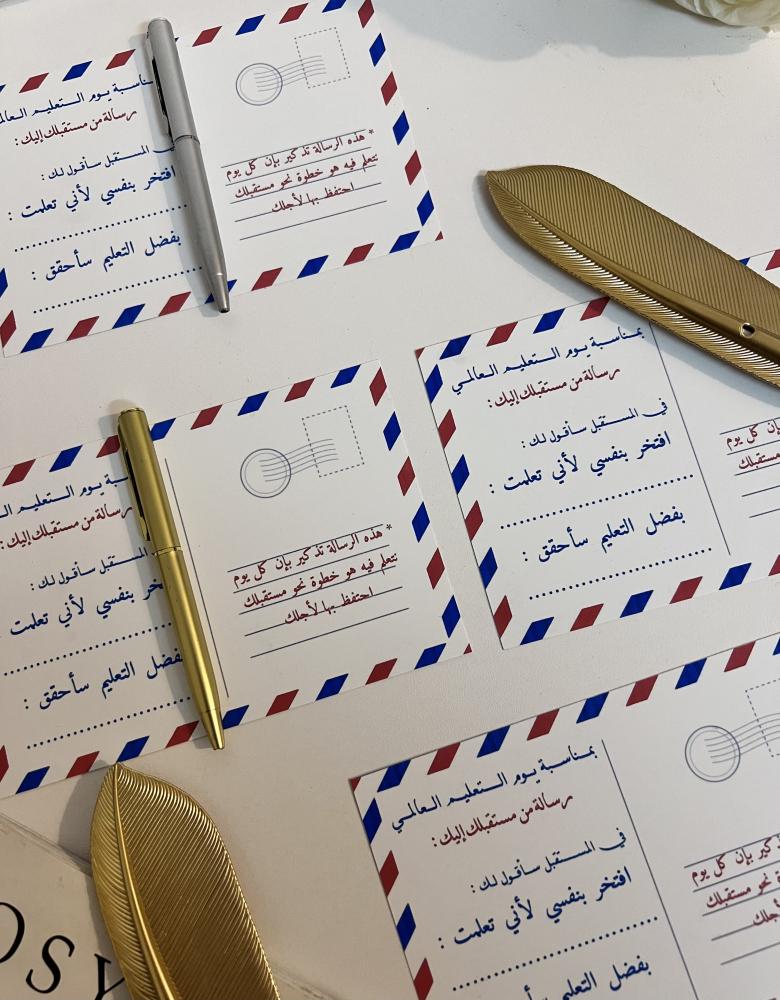 بمناسبة يوم التعليم العالمي
رسالة من مستقبلك إليك :
في المستقبل سأقول لك :
افتخر بنفسي لأني تعلمت :
بفضل التعليم سأحقق :
* هذه الرسالة تذكير بإن كل يوم
نتعلم فيه هو خطوة نحو مستقبلك
احتفظ بها لأجلك
بمناسبة يوم التعليم
رسالة من مستقبلك إليك :
المستقبل سأقول لك :
افتخر بنفسي لأني تعلمت :
بفضل التعليم سأحقق :
* هذه الرسالة تذكير بإن كل يوم
نتعلم فيه هو خطوة نحو مستقبلك
احتفظ بها لأجلك
بمناسبة يوم التعليم العالمي
رسالة من مستقبلك إليك :
في المستقبل سأقول لك :
افتخر بنفسي لأني تعلمت :
بفضل التعليم سأحقق :
بإن كل يوم
مستقبلك
بمناسبة يوم التعليم العالمي
رسالة من مستقبلك إليك :
في المستقبل سأقول لك :
افتخر بنفسي لأني تعلمت :
بفضل التعليم سأحقق :
تذكير بإن كل يوم
خطوة نحو مستقبلك
لأجلك
OSY